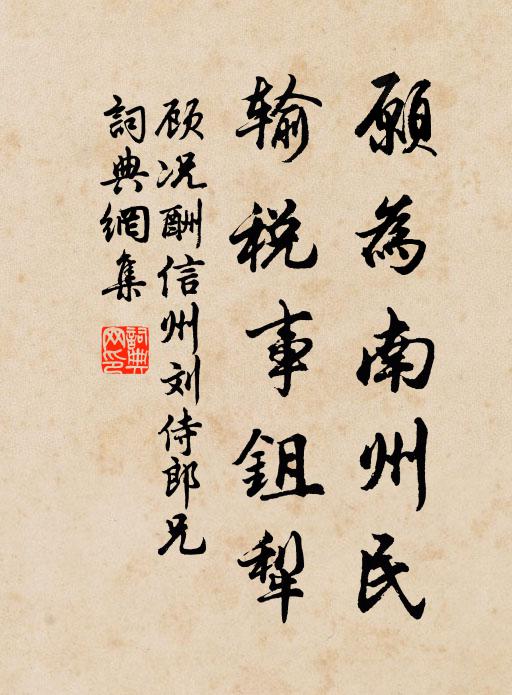 願為南州民
输税事鉏犁
顾况酬信州刘侍郎兄
詞典網集
詞典网印